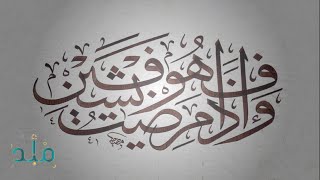 وإذا مرضت
فهو يشفين